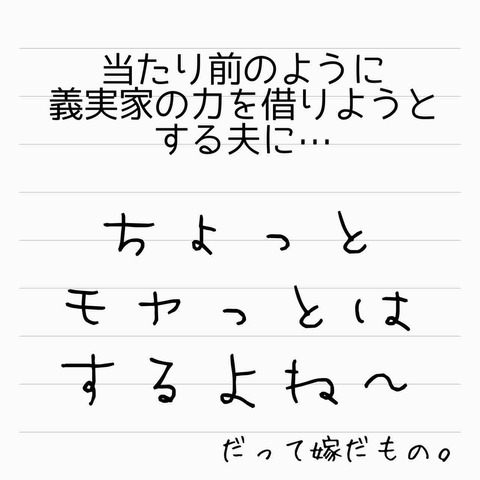 当たり前のように
義実家の力を借りようと
する夫に…
ちょっと
モヤっとは
するよね〜
だって嫁だもの。